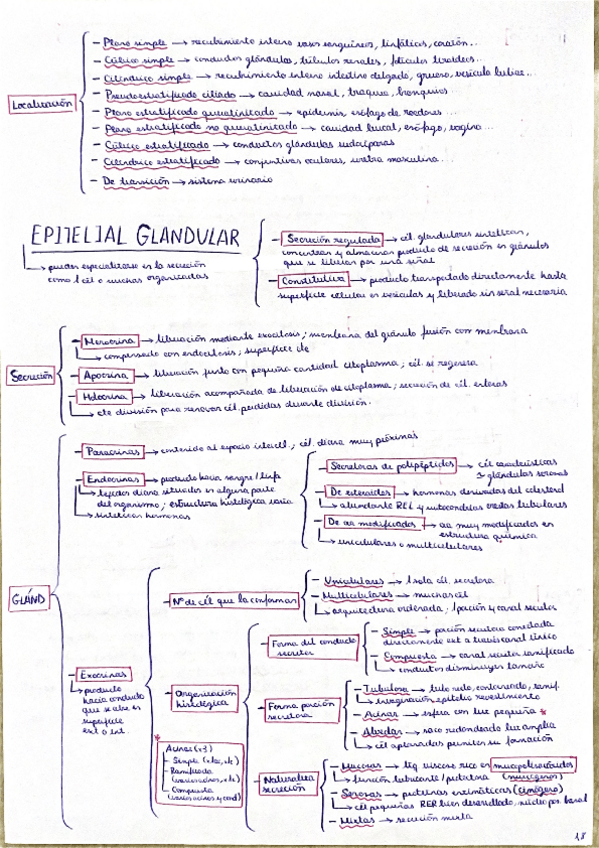 Localización
- Plano simple → recubrimiento interno vasos sanguíneos, linfáticos, corazón...
- Cúbico simple → conductos glándulas, túbulos renales, folículos tiroideos...
- Cilíndrico simple → recubrimiento interno intestino delgado, grueso, vesícula biliar...
- Pseudoestratificado ciliado → cavidad nasal, tráquea, bronquios...
- Plano estratificado queratinizado → epidermis, esófago de roedores...
- Plano estratificado no queratinizado → cavidad bucal, esófago, vagina...
- Cúbico estratificado → conductos glándulas sudoríparas
- Cilíndrico estratificado → conjuntivas oculares, uretra masculina...
- De transición → sistema urinario
EPITELIAL GLANDULAR
→ pueden especializarse en la secreción
como 1 cél o muchas organizadas
- Secreción regulada → cél. glandulares sintetizan,
concentran y almacenan producto de secreción en gránulos
que se liberan por una señal
- Constitutiva → producto transportado directamente hasta
superficie celular en vesículas y liberado sin señal necesaria
Secreción
- Merocrina → liberación mediante exocitosis; membrana del gránulo fusión con membrana
→ compensado con endocitosis; superficie cte
- Apocrina → liberación junto con pequeña cantidad citoplasma; cél. se regenera
- Holocrina → liberación acompañada de liberación de citoplasma; secreción de cél. enteras
→ cte división para renovar cél. perdidas durante división.
GLÁND
- Paracrinas → contenido al espacio intercel.; cél. diana muy próximas
- Endocrinas → producto hacia sangre/linfa
→ tejidos diana situados en alguna parte
del organismo; estructura histológica varía
→ sintetizan hormonas
- Secretoras de polipéptidos → cél características
glándulas serosas
- De esteroides → hormonas derivadas del colesterol
→ abundante REL y mitocondrias crestas tubulares
- De aa modificados → aa muy modificados en
estructura química
→ unicelulares o multicelulares
- Exocrinas
→ producto
hacia conducto
que se abre en
superficie
ext o int.
- Nº de cél que la conforman
- Unicelulares → 1 sola cél. secretora
- Multicelulares → muchas cél
→ arquitectura ordenada; porción y canal secretor
- Organización
histológica
- Forma del conducto
secretor
- Simple → porción secretora conectada
directamente ext a través canal único
- Compuesta → canal secretor ramificado
→ conductos disminuyen tamaño
- Forma porción
secretora
- Tubulosa → tubo recto, contorneado, ramif.
→ invaginación epitelio revestimiento
- Acinar → esfera con luz pequeña *
- Alveolar → saco redondeado luz amplia
→ cél aplanadas permiten su formación
*
Acinos (x3)
- Simple (1 los, 1c)
- Ramificada
(varios acinos, 1c)
- Compuesta
(varios acinos y cond)
- Naturaleza
secreción
- Mucosas → líq viscoso rico en mucopolisacáridos
→ función lubricante/protectora (mucígeno)
- Serosas → proteínas enzimáticas (cimógeno)
→ cél pequeñas RER bien desarrollado, núcleo por. basal
- Mixtas → secreción mixta
1,8